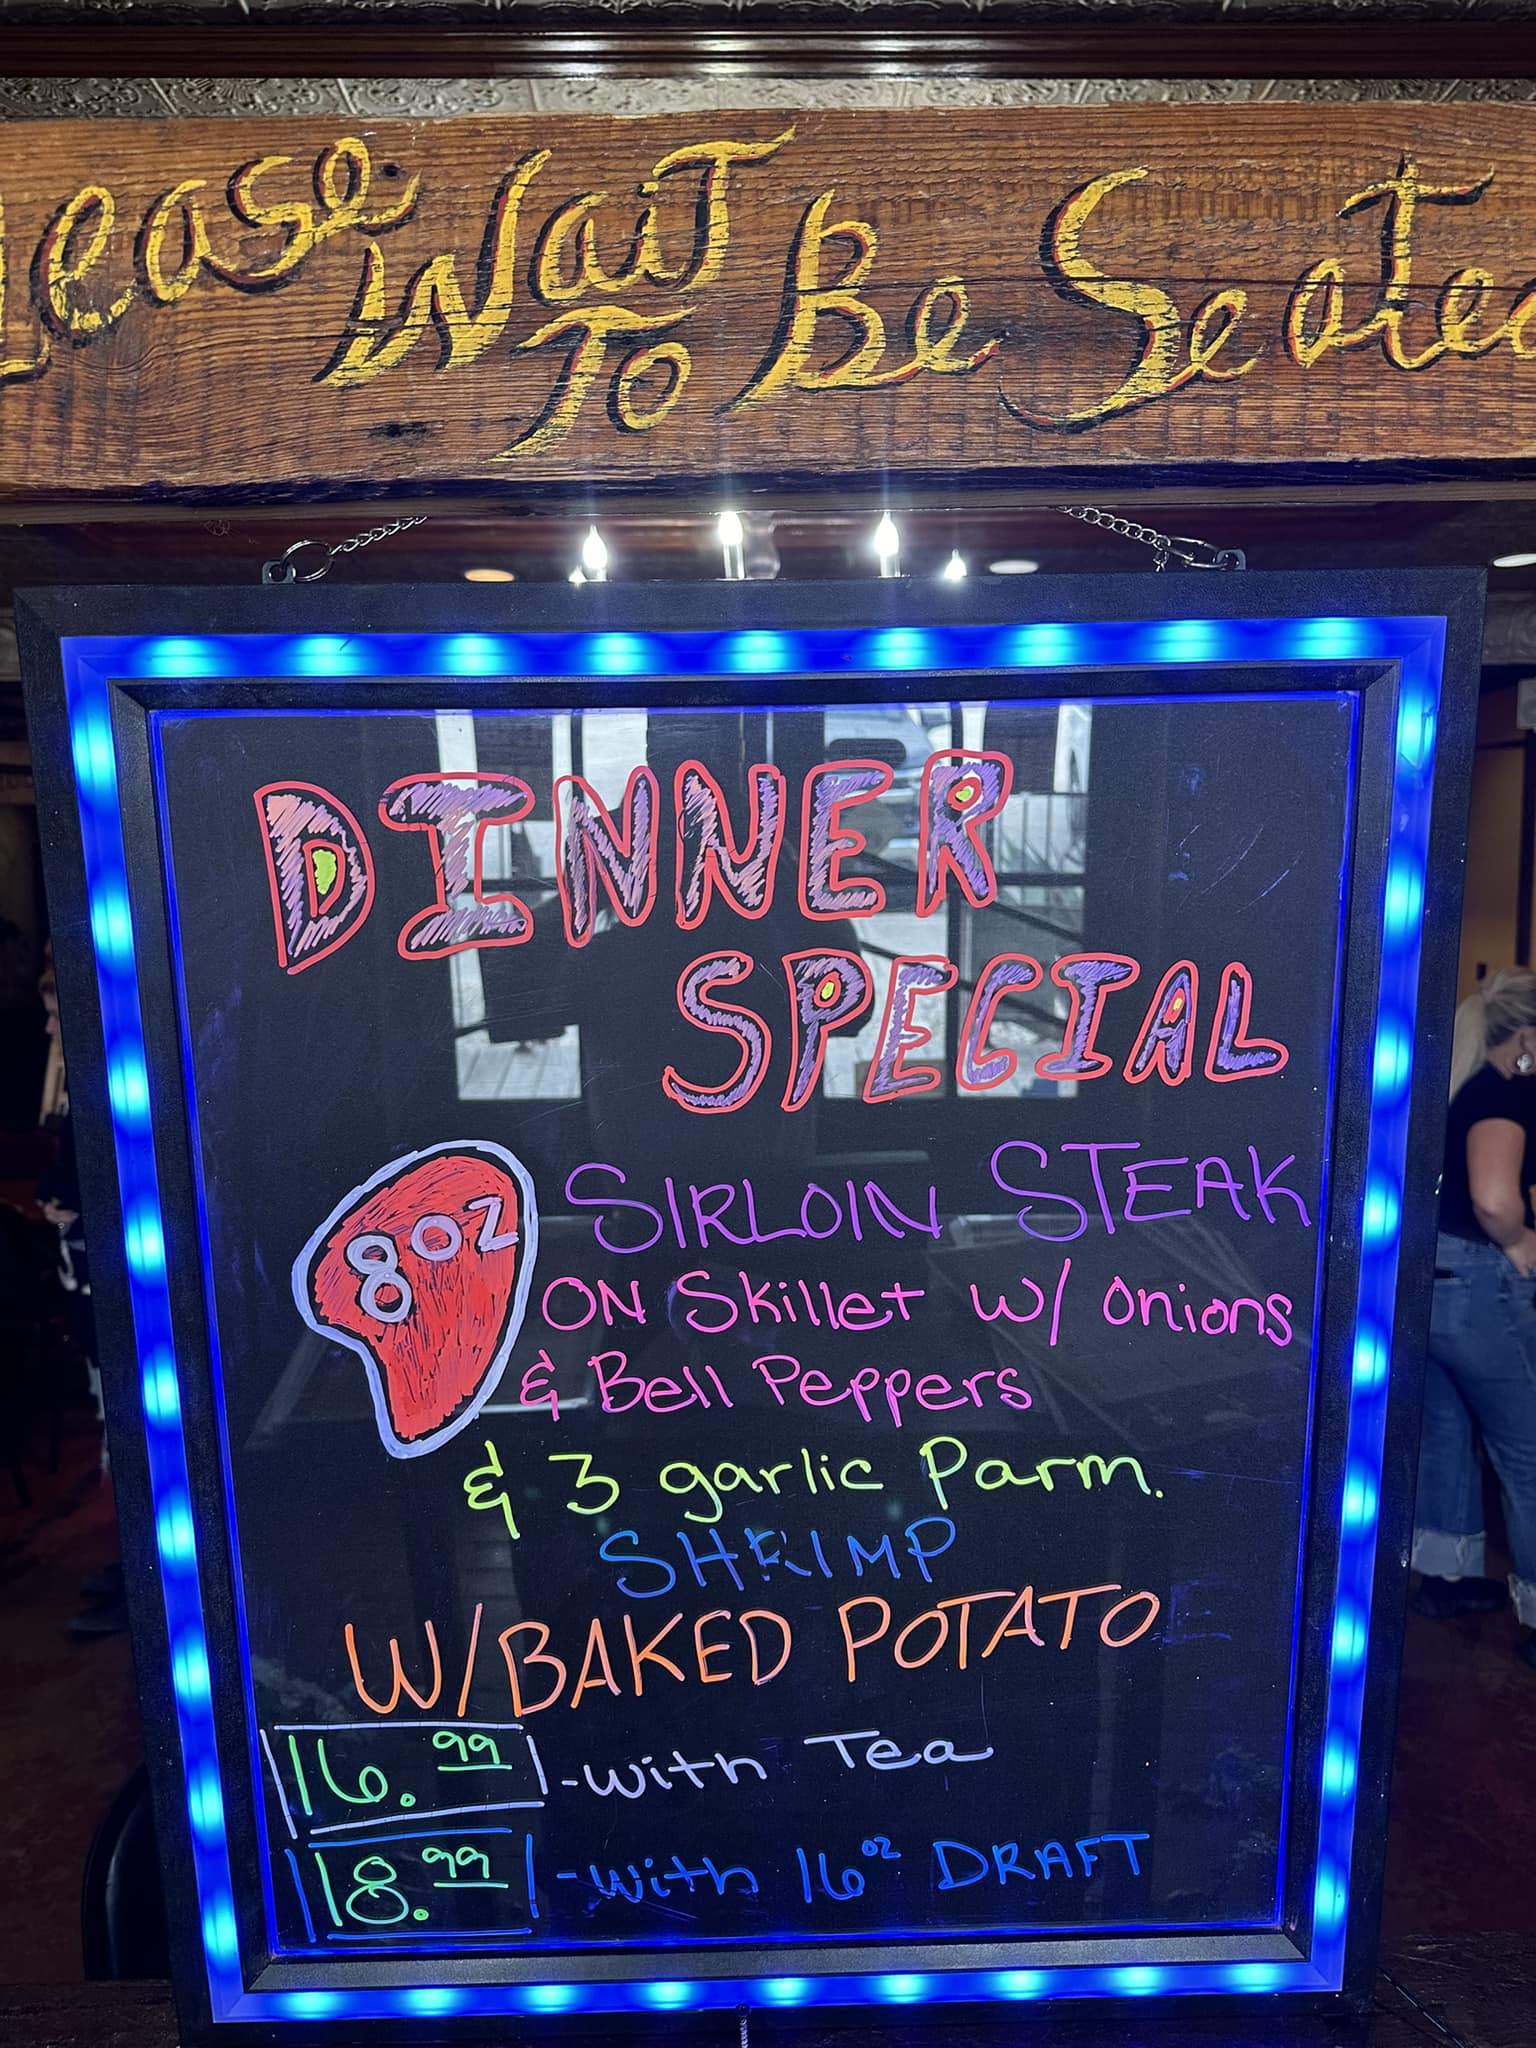 Please Wait
To Be Seated
DINNER
SPECIAL
8 oz
SIRLOIN STEAK
ON Skillet w/ onions
& Bell Peppers
& 3 garlic Parm.
SHRIMP
W/BAKED POTATO
16.99 - with Tea
18.99 - with 16oz DRAFT